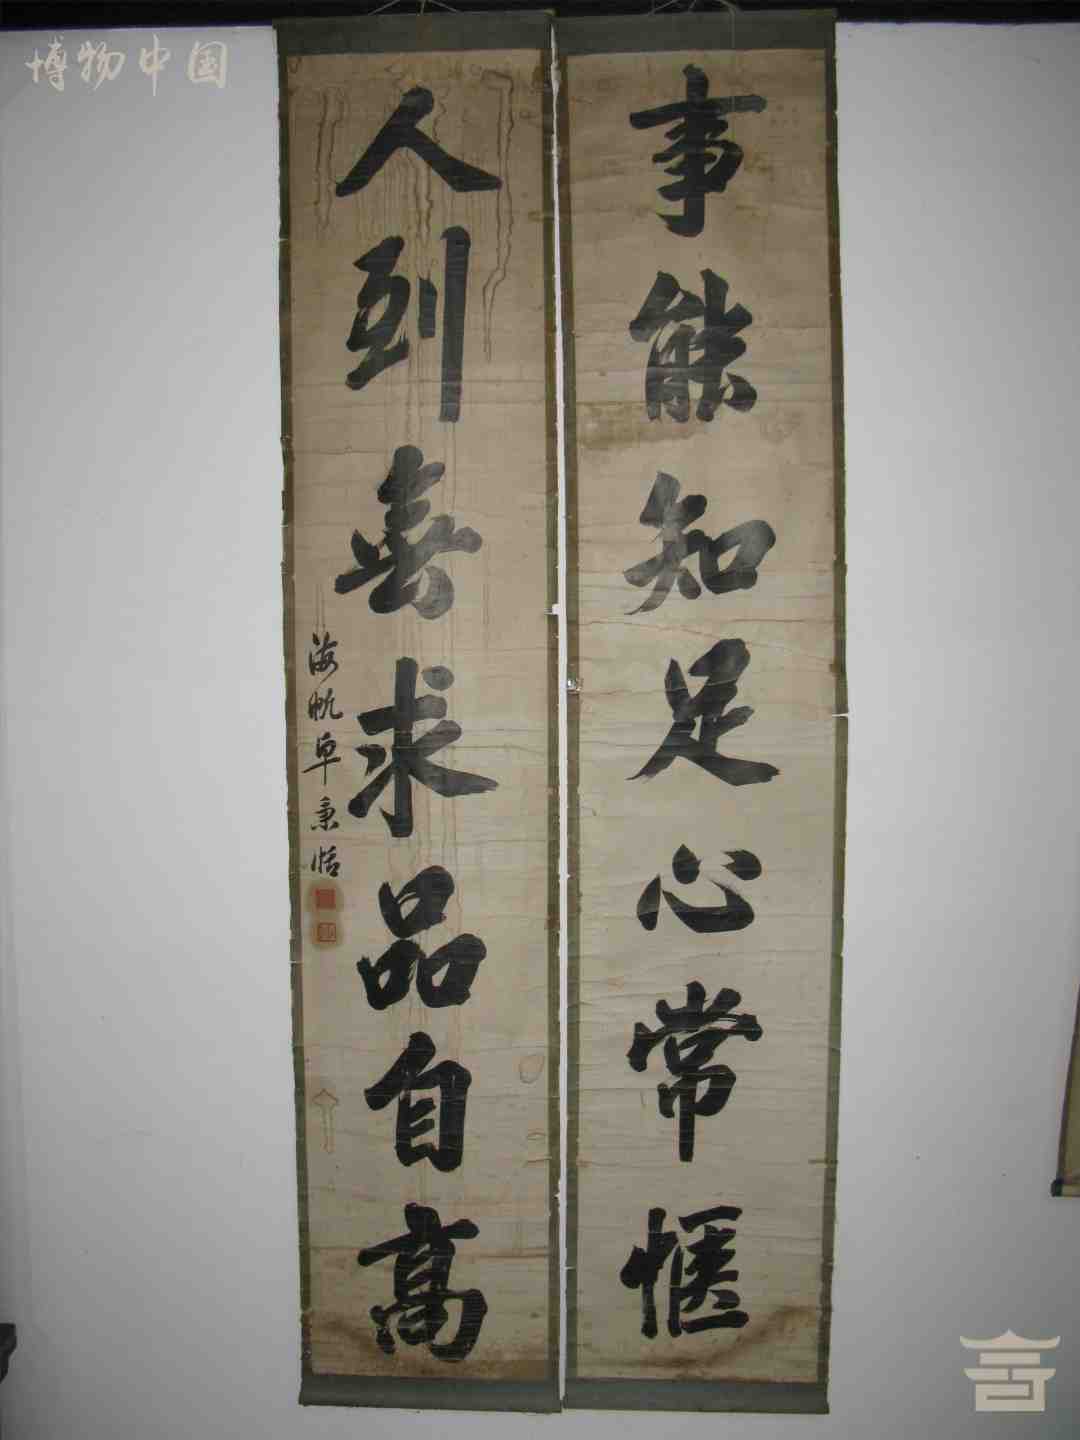 博物中国
事能知足心常愜
人到無求品自高
海帆卓秉恬